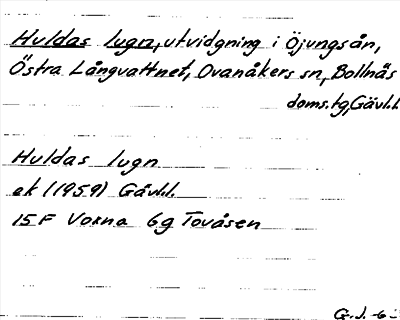 Huldas lugn, utvidgning i Öjungsån,
Östra Långvattnet, Ovanåkers sn, Bollnäs
doms.tg, Gävl.l.
Huldas lugn
ek (1959) Gävl.l.
15 F Voxna 6g Tovåsen
G. J. -6